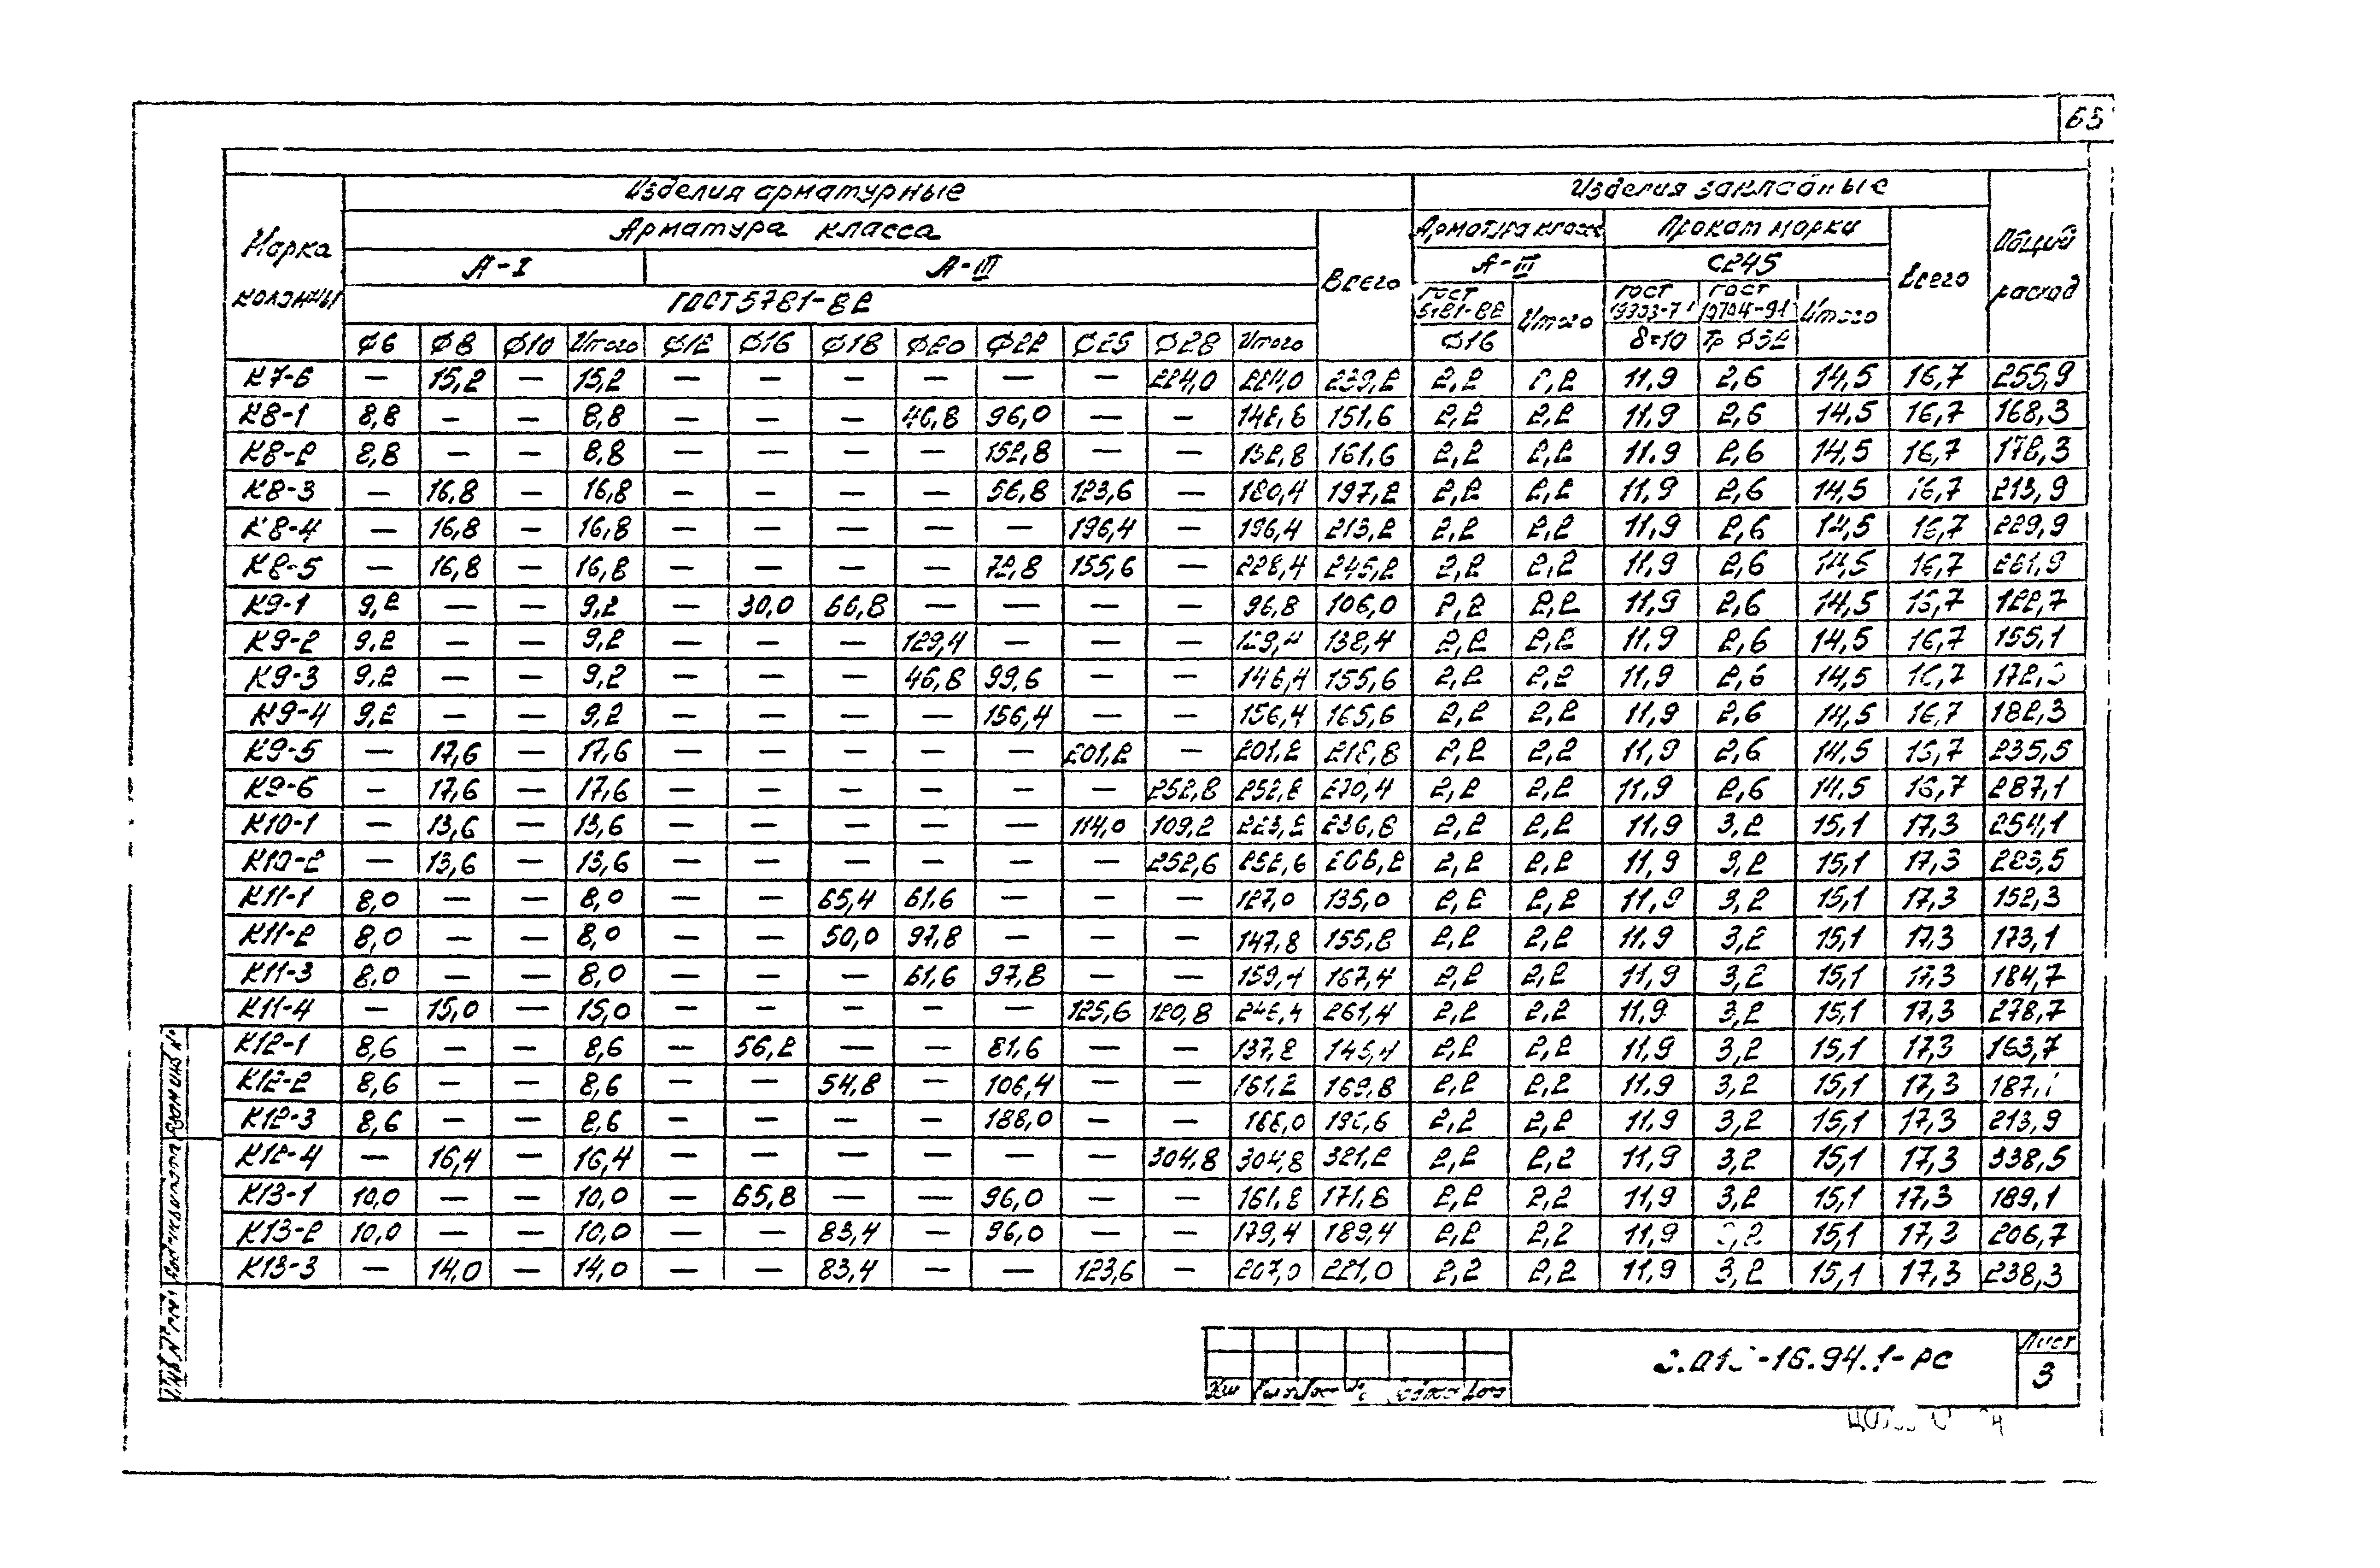 65
Изделия арматурные
Изделия закладные
Марка колонны
Арматура класса
Всего
Арматура класс
Прокат марки
Всего
Общий расход
А-I
А-III
А-III
С245
ГОСТ 5781-82
ГОСТ 5781-82
Итого
ГОСТ 19903-74
ГОСТ 10704-91
Итого
Ø6 Ø8 Ø10 Итого Ø12 Ø16 Ø18 Ø20 Ø22 Ø25 Ø28 Итого Ø16 δ=10 Тр Ø32
К7-6 — 15,2 — 15,2 — — — — — — 224,0 224,0 239,2 2,2 2,2 11,9 2,6 14,5 16,7 255,9
К8-1 8,8 — — 8,8 — — — 46,8 96,0 — — 142,8 151,6 2,2 2,2 11,9 2,6 14,5 16,7 168,3
К8-2 8,8 — — 8,8 — — — — 152,8 — — 152,8 161,6 2,2 2,2 11,9 2,6 14,5 16,7 178,3
К8-3 — 16,8 — 16,8 — — — — 56,8 123,6 — 180,4 197,2 2,2 2,2 11,9 2,6 14,5 16,7 213,9
К8-4 — 16,8 — 16,8 — — — — — 196,4 — 196,4 213,2 2,2 2,2 11,9 2,6 14,5 16,7 229,9
К8-5 — 16,8 — 16,8 — — — — 72,8 155,6 — 228,4 245,2 2,2 2,2 11,9 2,6 14,5 16,7 261,9
К9-1 9,2 — — 9,2 — 30,0 66,8 — — — — 96,8 106,0 2,2 2,2 11,9 2,6 14,5 16,7 122,7
К9-2 9,2 — — 9,2 — — — 129,4 — — — 129,4 138,4 2,2 2,2 11,9 2,6 14,5 16,7 155,1
К9-3 9,2 — — 9,2 — — — 46,8 99,6 — — 146,4 155,6 2,2 2,2 11,9 2,6 14,5 16,7 172,3
К9-4 9,2 — — 9,2 — — — — 156,4 — — 156,4 165,6 2,2 2,2 11,9 2,6 14,5 16,7 182,3
К9-5 — 17,6 — 17,6 — — — — — 201,2 — 201,2 218,8 2,2 2,2 11,9 2,6 14,5 16,7 235,5
К9-6 — 17,6 — 17,6 — — — — — — 252,8 252,8 270,4 2,2 2,2 11,9 2,6 14,5 16,7 287,1
К10-1 — 13,6 — 13,6 — — — — — 114,0 109,2 223,2 236,8 2,2 2,2 11,9 3,2 15,1 17,3 254,1
К10-2 — 13,6 — 13,6 — — — — — — 252,6 252,6 266,2 2,2 2,2 11,9 3,2 15,1 17,3 283,5
К11-1 8,0 — — 8,0 — — 65,4 61,6 — — — 127,0 135,0 2,2 2,2 11,9 3,2 15,1 17,3 152,3
К11-2 8,0 — — 8,0 — — 50,0 97,8 — — — 147,8 155,8 2,2 2,2 11,9 3,2 15,1 17,3 173,1
К11-3 8,0 — — 8,0 — — — 61,6 97,8 — — 159,4 167,4 2,2 2,2 11,9 3,2 15,1 17,3 184,7
К11-4 — 15,0 — 15,0 — — — — — 125,6 120,8 246,4 261,4 2,2 2,2 11,9 3,2 15,1 17,3 278,7
К12-1 8,6 — — 8,6 — 56,2 — — 81,6 — — 137,8 146,4 2,2 2,2 11,9 3,2 15,1 17,3 163,7
К12-2 8,6 — — 8,6 — — 54,8 — 106,4 — — 161,2 169,8 2,2 2,2 11,9 3,2 15,1 17,3 187,1
К12-3 8,6 — — 8,6 — — — — 188,0 — — 188,0 196,6 2,2 2,2 11,9 3,2 15,1 17,3 213,9
К12-4 — 16,4 — 16,4 — — — — — — 304,8 304,8 321,2 2,2 2,2 11,9 3,2 15,1 17,3 338,5
К13-1 10,0 — — 10,0 — 65,8 — — 96,0 — — 161,8 171,8 2,2 2,2 11,9 3,2 15,1 17,3 189,1
К13-2 10,0 — — 10,0 — — 83,4 — 96,0 — — 179,4 189,4 2,2 2,2 11,9 3,2 15,1 17,3 206,7
К13-3 — 14,0 — 14,0 — — 83,4 — — 123,6 — 207,0 221,0 2,2 2,2 11,9 3,2 15,1 17,3 238,3
-16.94.1-РС
Лист
3